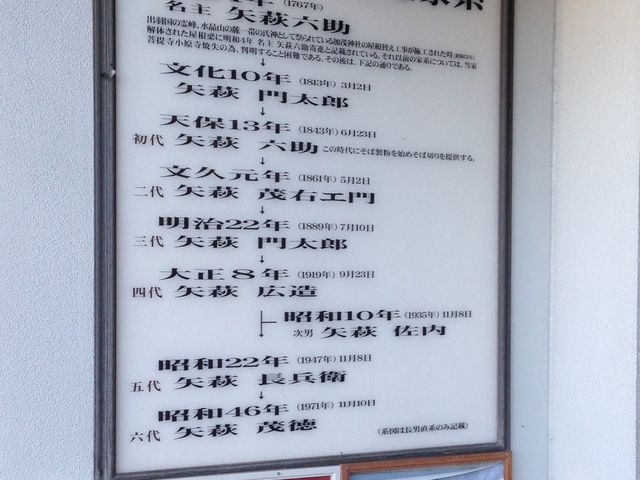 年（1767年）
名主 矢萩六助
出羽国の霊峰、水晶山の麓一帯の氏神として祭られている加茂神社の屋根替え工事が施工された時
解体された屋根梁に明和4年 名主 矢萩六助寄進と記載されている。それ以前の家系については、当家
菩提寺小原寺焼失の為、判明すること困難である。その後は、下記の通りである。
↓
文化10年（1813年）3月2日
矢萩 門太郎
↓
天保13年（1843年）6月23日
初代 矢萩 六助 この時代にそば製粉を始めそば切りを提供する。
↓
文久元年（1861年）5月2日
二代 矢萩 茂右エ門
↓
明治22年（1889年）7月10日
三代 矢萩 門太郎
↓
大正8年（1919年）9月23日
四代 矢萩 広造
昭和10年（1935年）11月8日
次男 矢萩 佐内
↓
昭和22年（1947年）11月8日
五代 矢萩 長兵衛
↓
昭和46年（1971年）11月10日
六代 矢萩 茂徳
（系図は長男直系のみ記載）